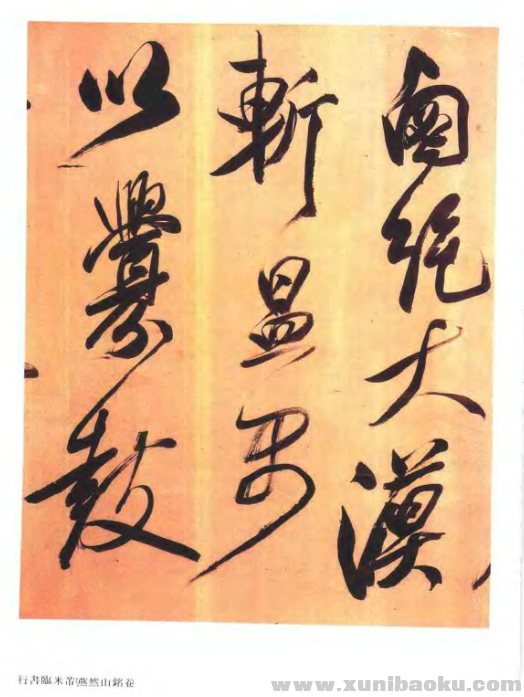 鹵絕大漠
斬昷禺
以釁鼓
行書臨米芾燕然山銘卷
www.xunibaoku.com